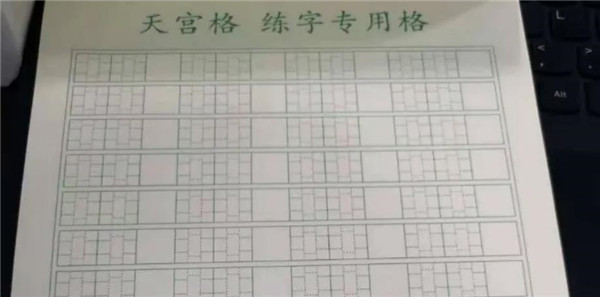 天宫格 练字专用格
L
Alt